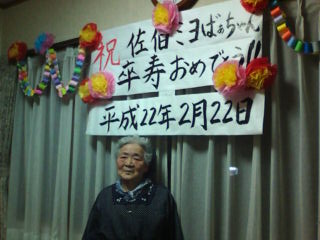 祝 佐伯ミヨばぁちゃん
卒寿おめでとう!!
平成22年2月22日